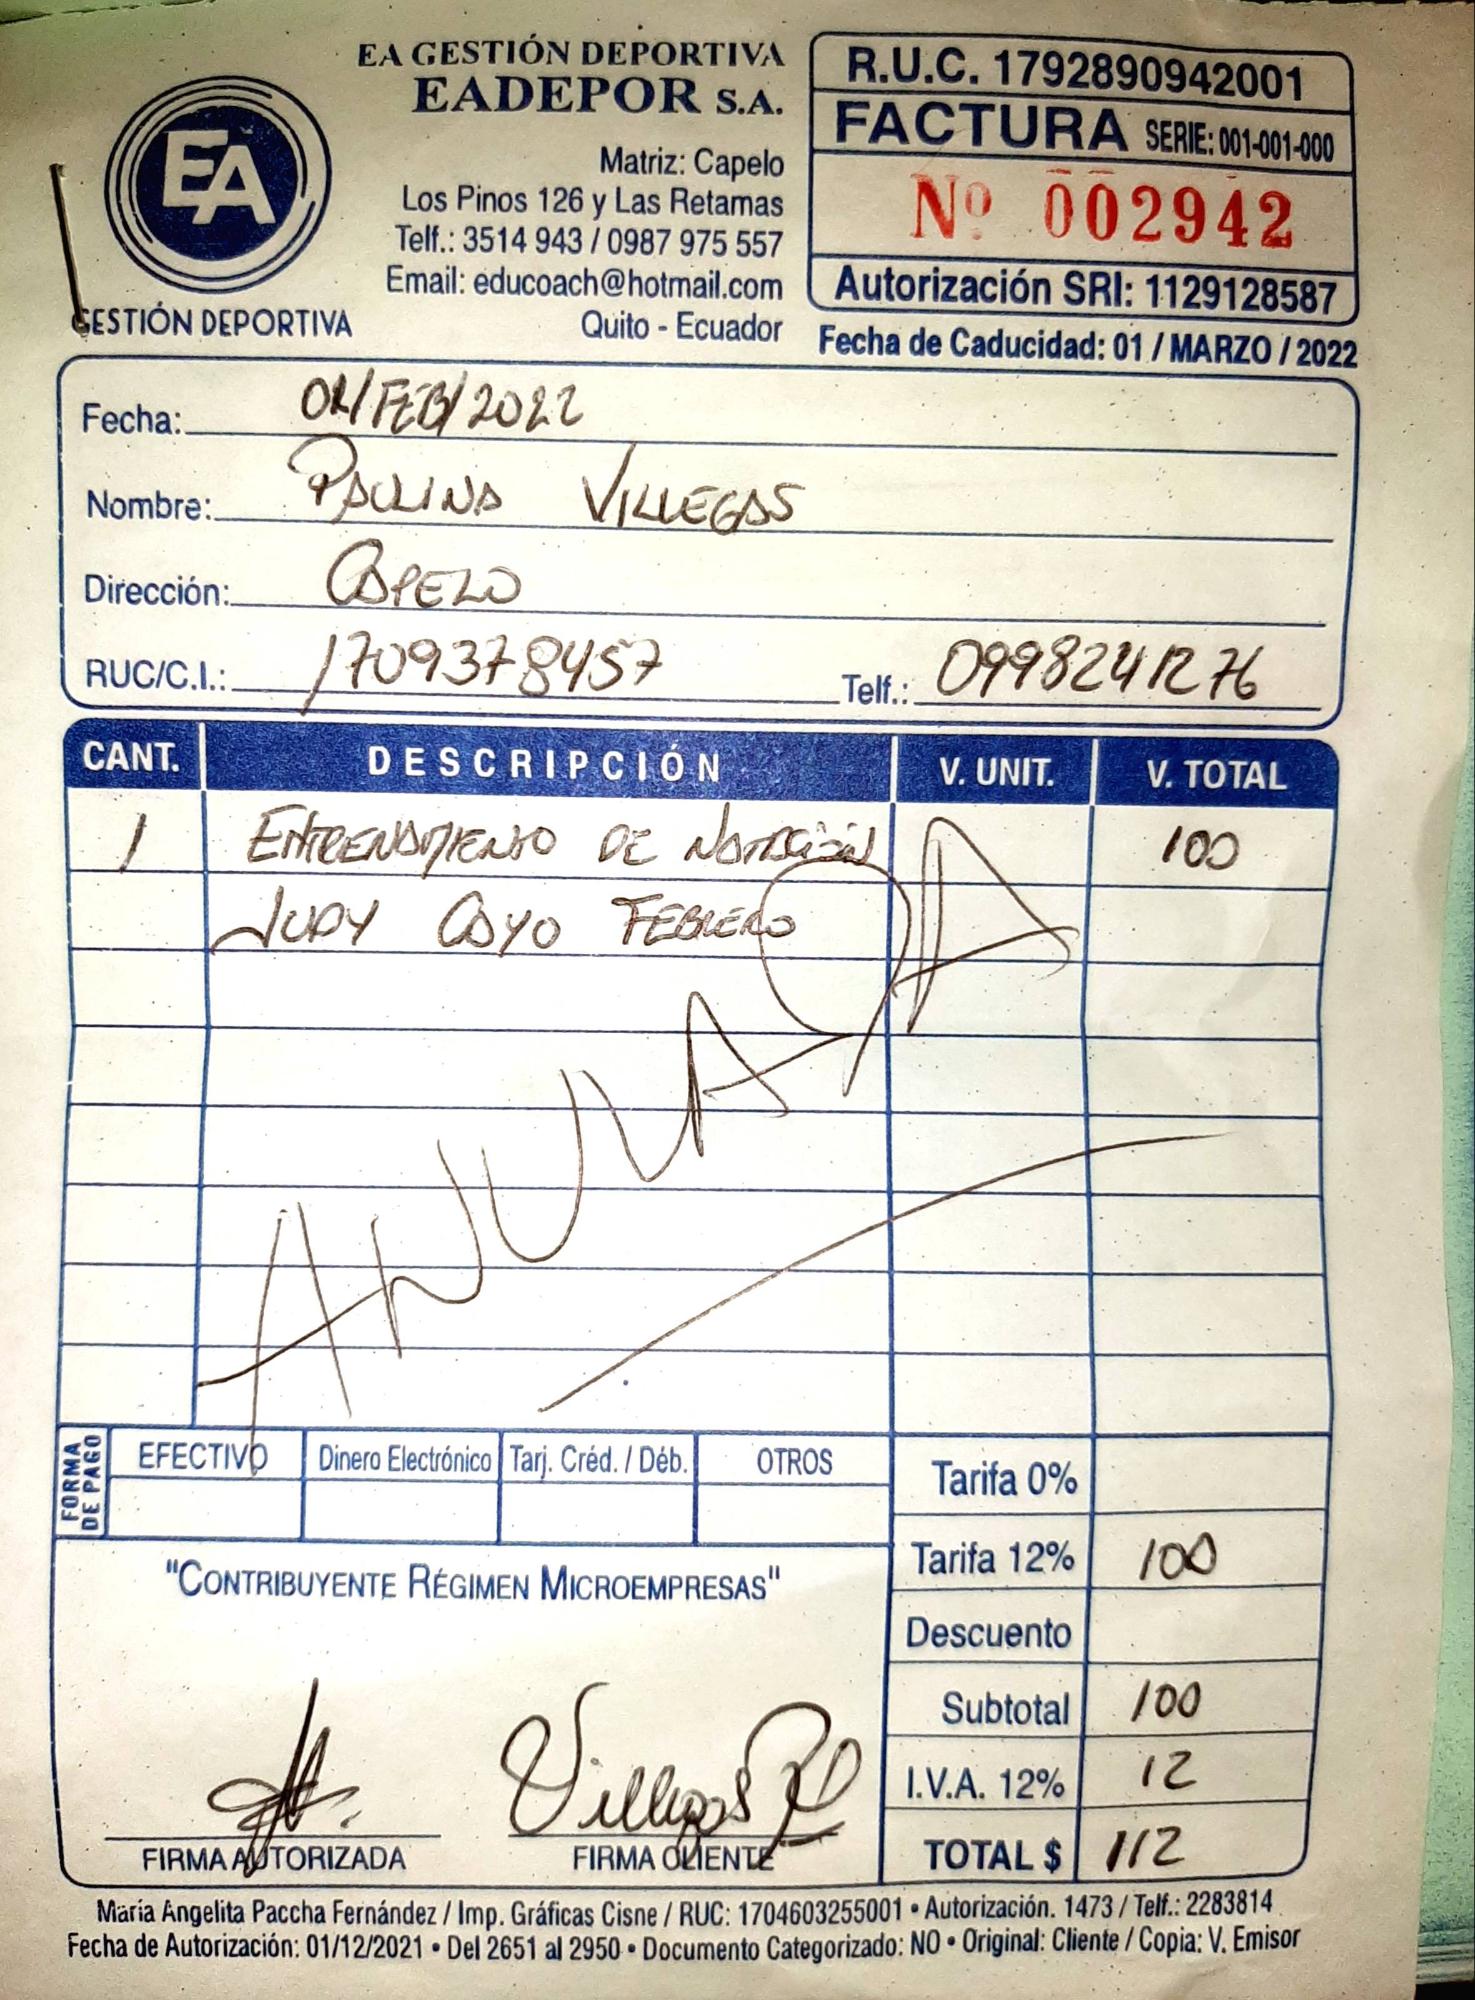 EA GESTIÓN DEPORTIVA
EADEPOR S.A.
EA
GESTIÓN DEPORTIVA
Matriz: Capelo
Los Pinos 126 y Las Retamas
Telf.: 3514 943 / 0987 975 557
Email: educoach@hotmail.com
Quito - Ecuador
R.U.C. 1792890942001
FACTURA SERIE: 001-001-000
Nº 002942
Autorización SRI: 1129128587
Fecha de Caducidad: 01 / MARZO / 2022
Fecha: /FEB/2022
Nombre: PAULINA VILLEGAS
Dirección: CAPELO
RUC/C.I.: 1709378457 Telf.: 0998241276
CANT. DESCRIPCIÓN V. UNIT. V. TOTAL
1 ENTRENAMIENTO DE NATACIÓN 100
JUDY CAYO FEBRERO
ANULADA
FORMA DE PAGO
EFECTIVO Dinero Electrónico Tarj. Créd. / Déb. OTROS
Tarifa 0%
Tarifa 12% 100
Descuento
Subtotal 100
I.V.A. 12% 12
TOTAL $ 112
"CONTRIBUYENTE RÉGIMEN MICROEMPRESAS"
Villegas
FIRMA AUTORIZADA FIRMA CLIENTE
María Angelita Paccha Fernández / Imp. Gráficas Cisne / RUC: 1704603255001 • Autorización. 1473 / Telf.: 2283814
Fecha de Autorización: 01/12/2021 • Del 2651 al 2950 • Documento Categorizado: NO • Original: Cliente / Copia: V. Emisor